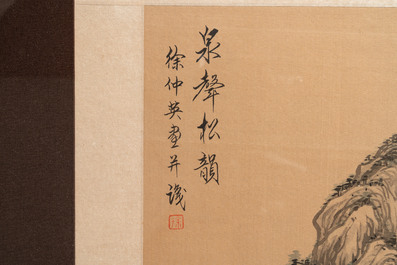 泉聲松韻
徐仲英畫并識